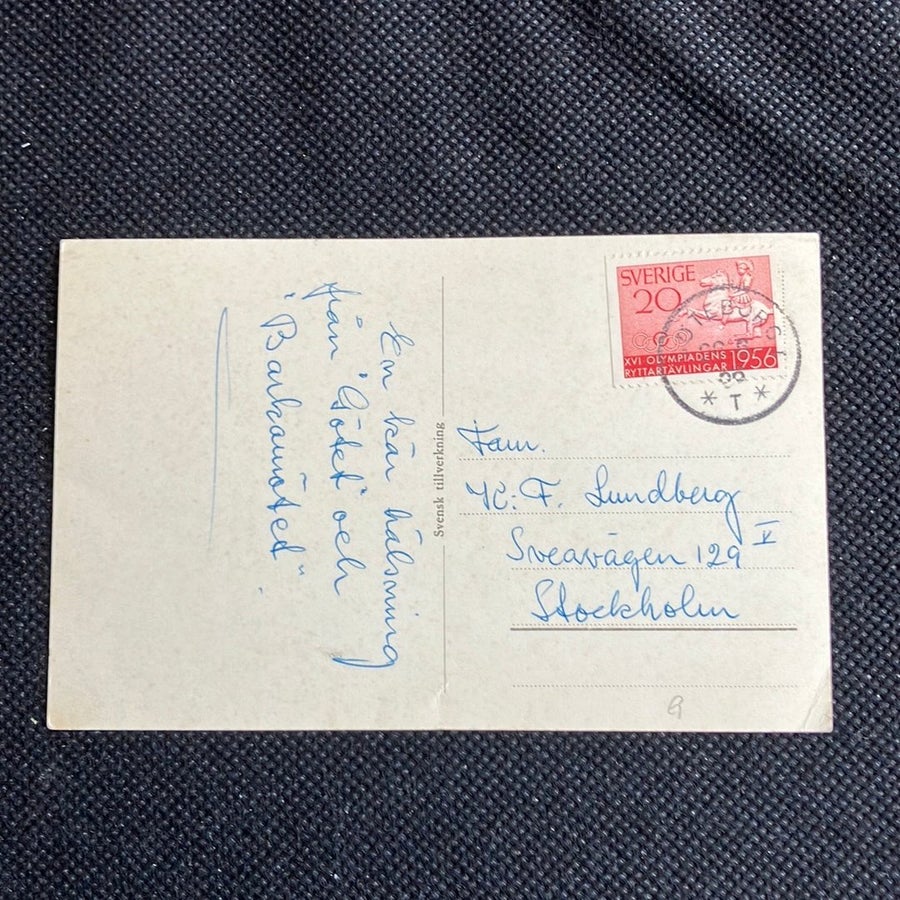 En kär hälsning
från "Götet" och
"Barkamötet".
Svensk tillverkning
SVERIGE
20
XVI OLYMPIADENS
RYTTARTÄVLINGAR 1956
GÖTEBORG 1
* T *
Fam.
K. F. Lundberg
Sveavägen 129 V
Stockholm